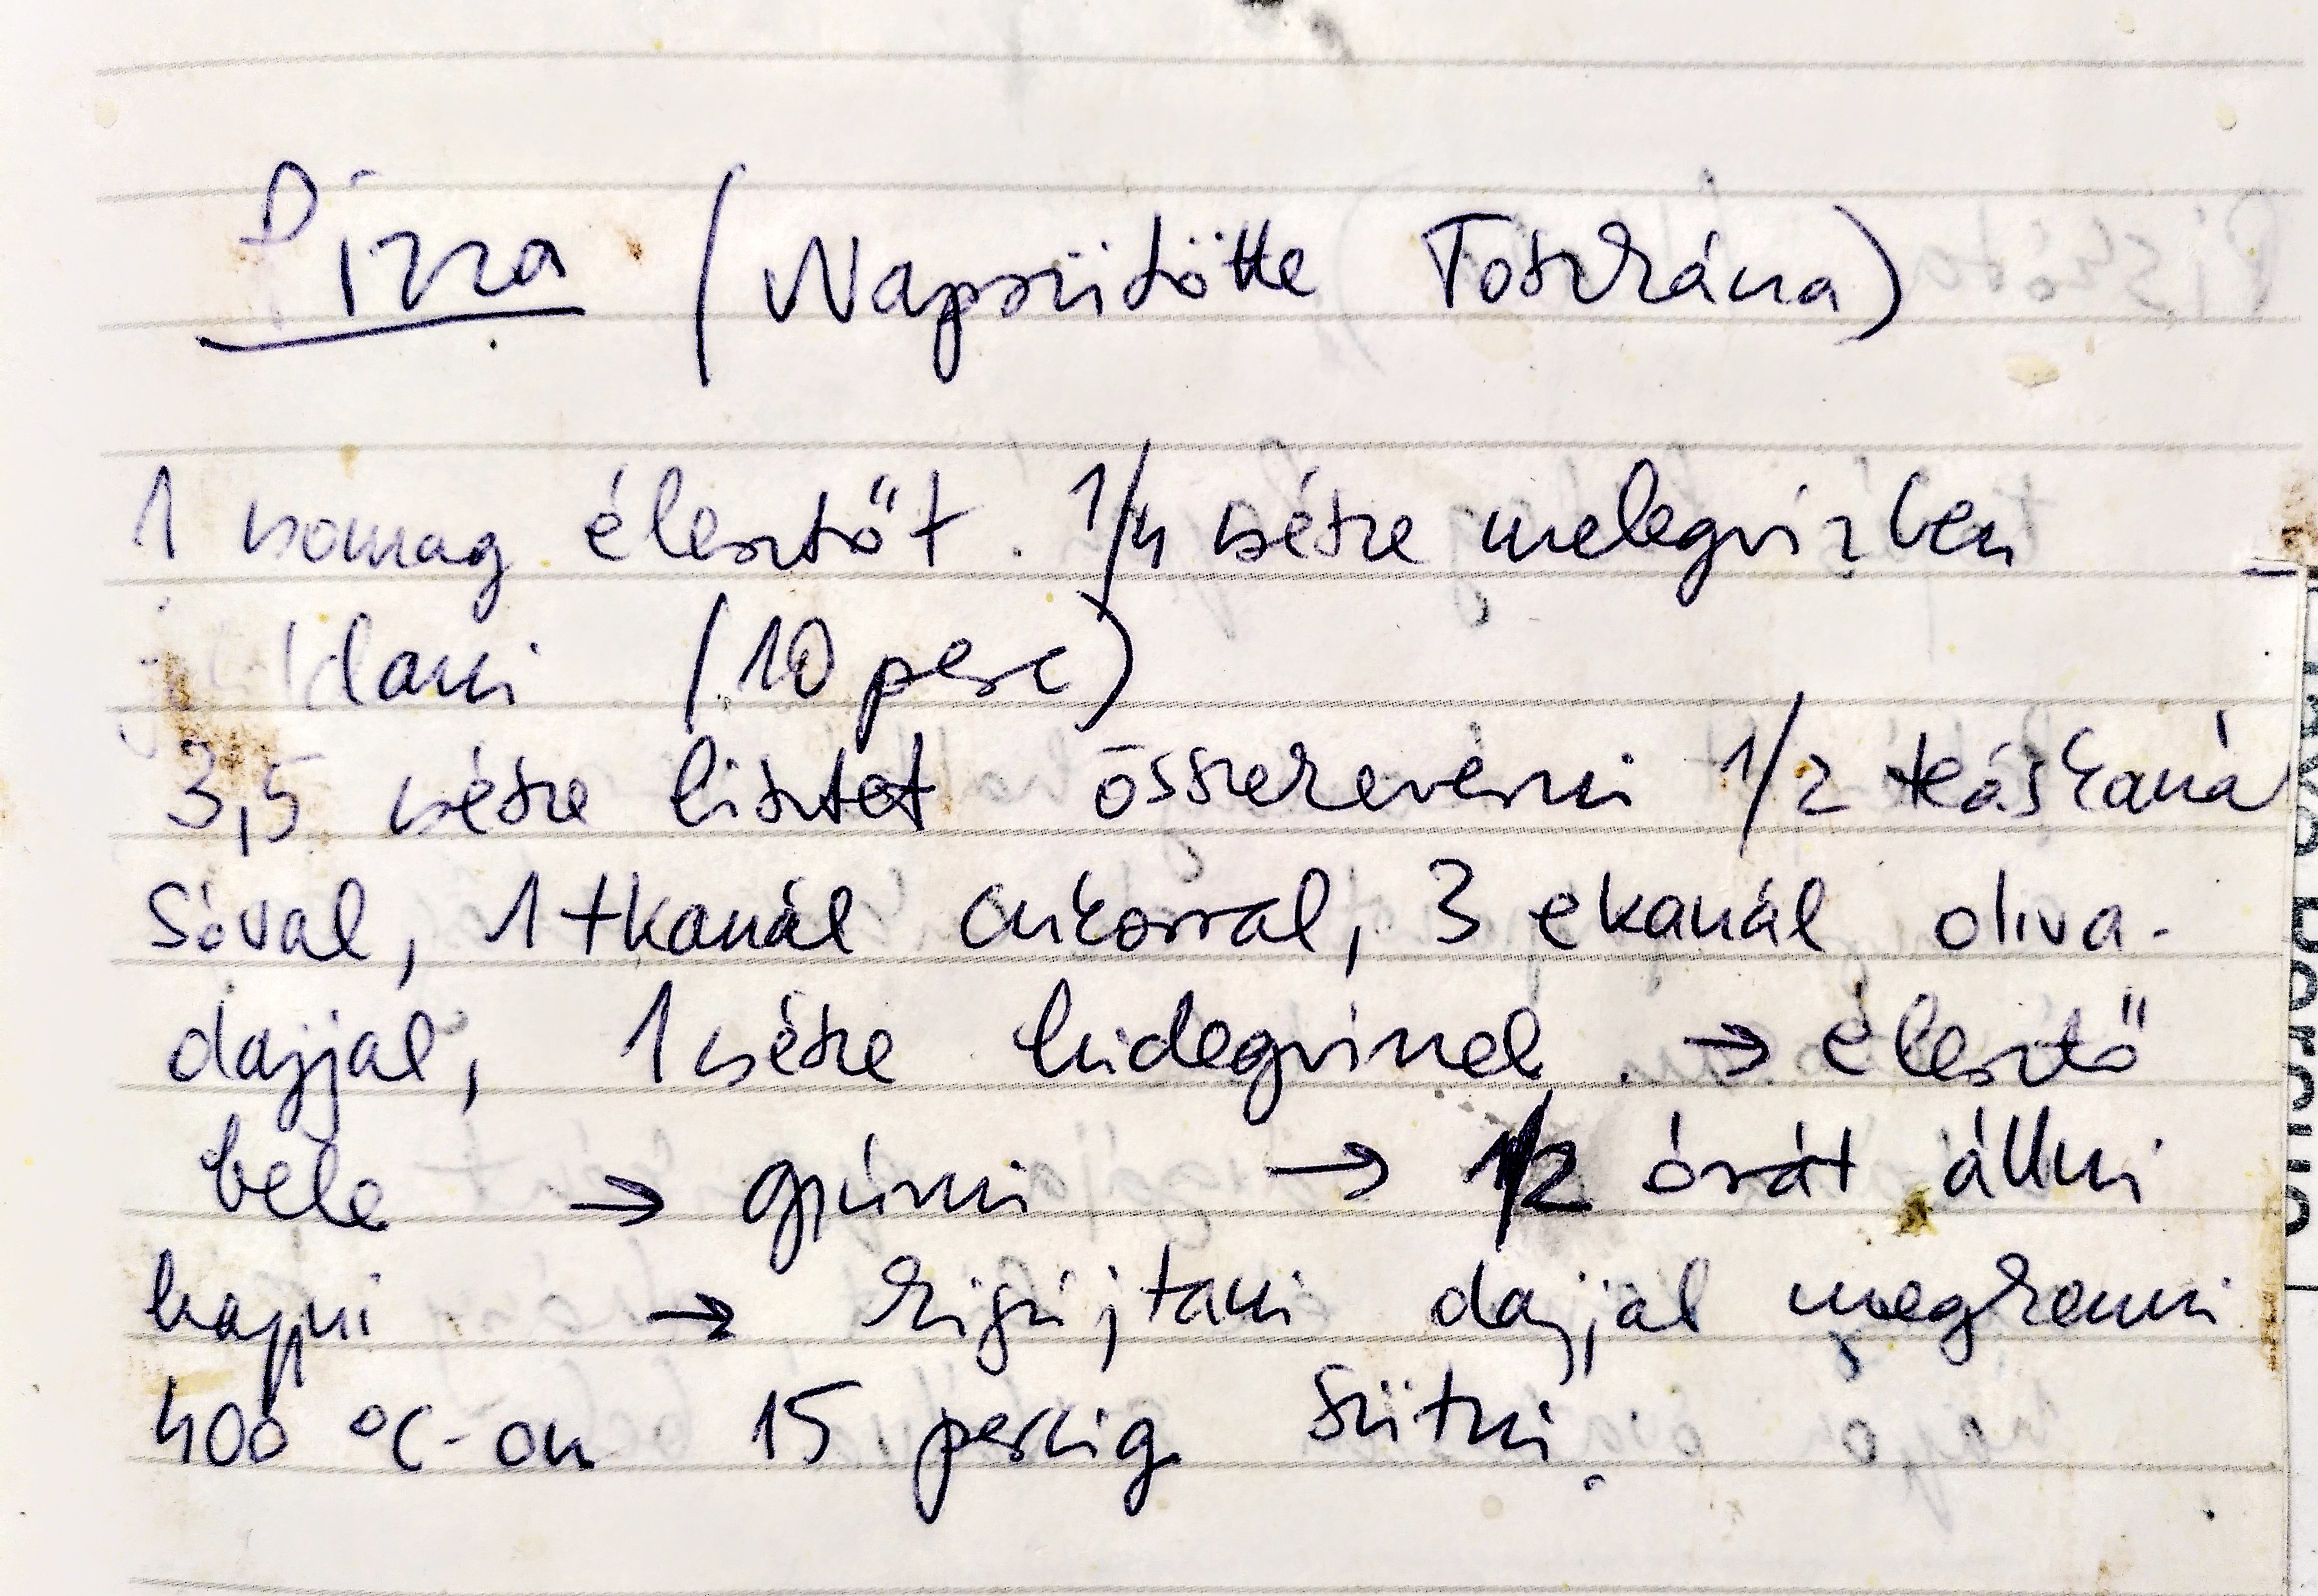 Pizza (Napsütötte Toszkána)
1 csomag élesztőt 1/4 csésze melegvízben
oldani (10 perc)
3,5 csésze lisztet összekeverni 1/2 teáskaná
sóval, 1 tkanál cukorral, 3 ekanál oliva-
dajjal, 1 csésze hidegvízzel. → élesztő
bele → gyúrni → 1/2 órát állni
hagyni → kigyújtani dajjal megkenni
400 °C-on 15 percig sütni.